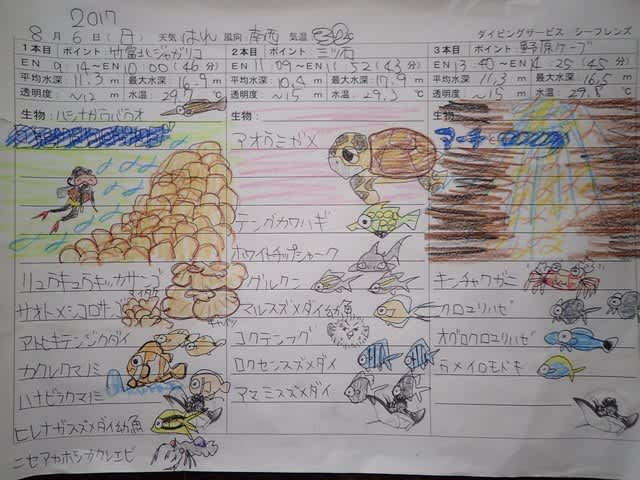 2017
8 月 6 日 (日) 天気 はれ 風向 南西 気温 ダイビングサービス シーフレンズ
1本目 ポイント 竹富北ジャガリコ 2本目 ポイント: 三ツ石 3本目 ポイント: 野原ケーブ
EN 9:14 ~ EN 10:00 (46分) EN 11:09 ~ EN 11:52 (43分) EN 13:40 ~ EN 14:25 (45分)
平均水深: 11.3 m 最大水深: 16.9 m 平均水深: 10.8 m 最大水深: 17.9 m 平均水深: 11.3 m 最大水深: 16.5 m
透明度: ~12 m 水温: 29. ℃ 透明度: ~15 m 水温: 29.3 ℃ 透明度: ~15 m 水温: 29.8 ℃
生物: ハシナガウバウオ 生物: 生物:
アオウミガメ
テングカワハギ
ホワイトチップシャーク
リュウキュウキッカサンゴ グルクン キンチャクガニ
サオトメシコロサンゴ マルスズメダイ幼魚 クロユリハゼ
アトヒキテンジクダイ コクテンフグ オグロクロユリハゼ
カクレクマノミ ロクセンスズメダイ ウメイロモドキ
ハナビラクマノミ アマミスズメダイ
ヒレナガスズメダイ幼魚
ニセアカホシカクレエビ